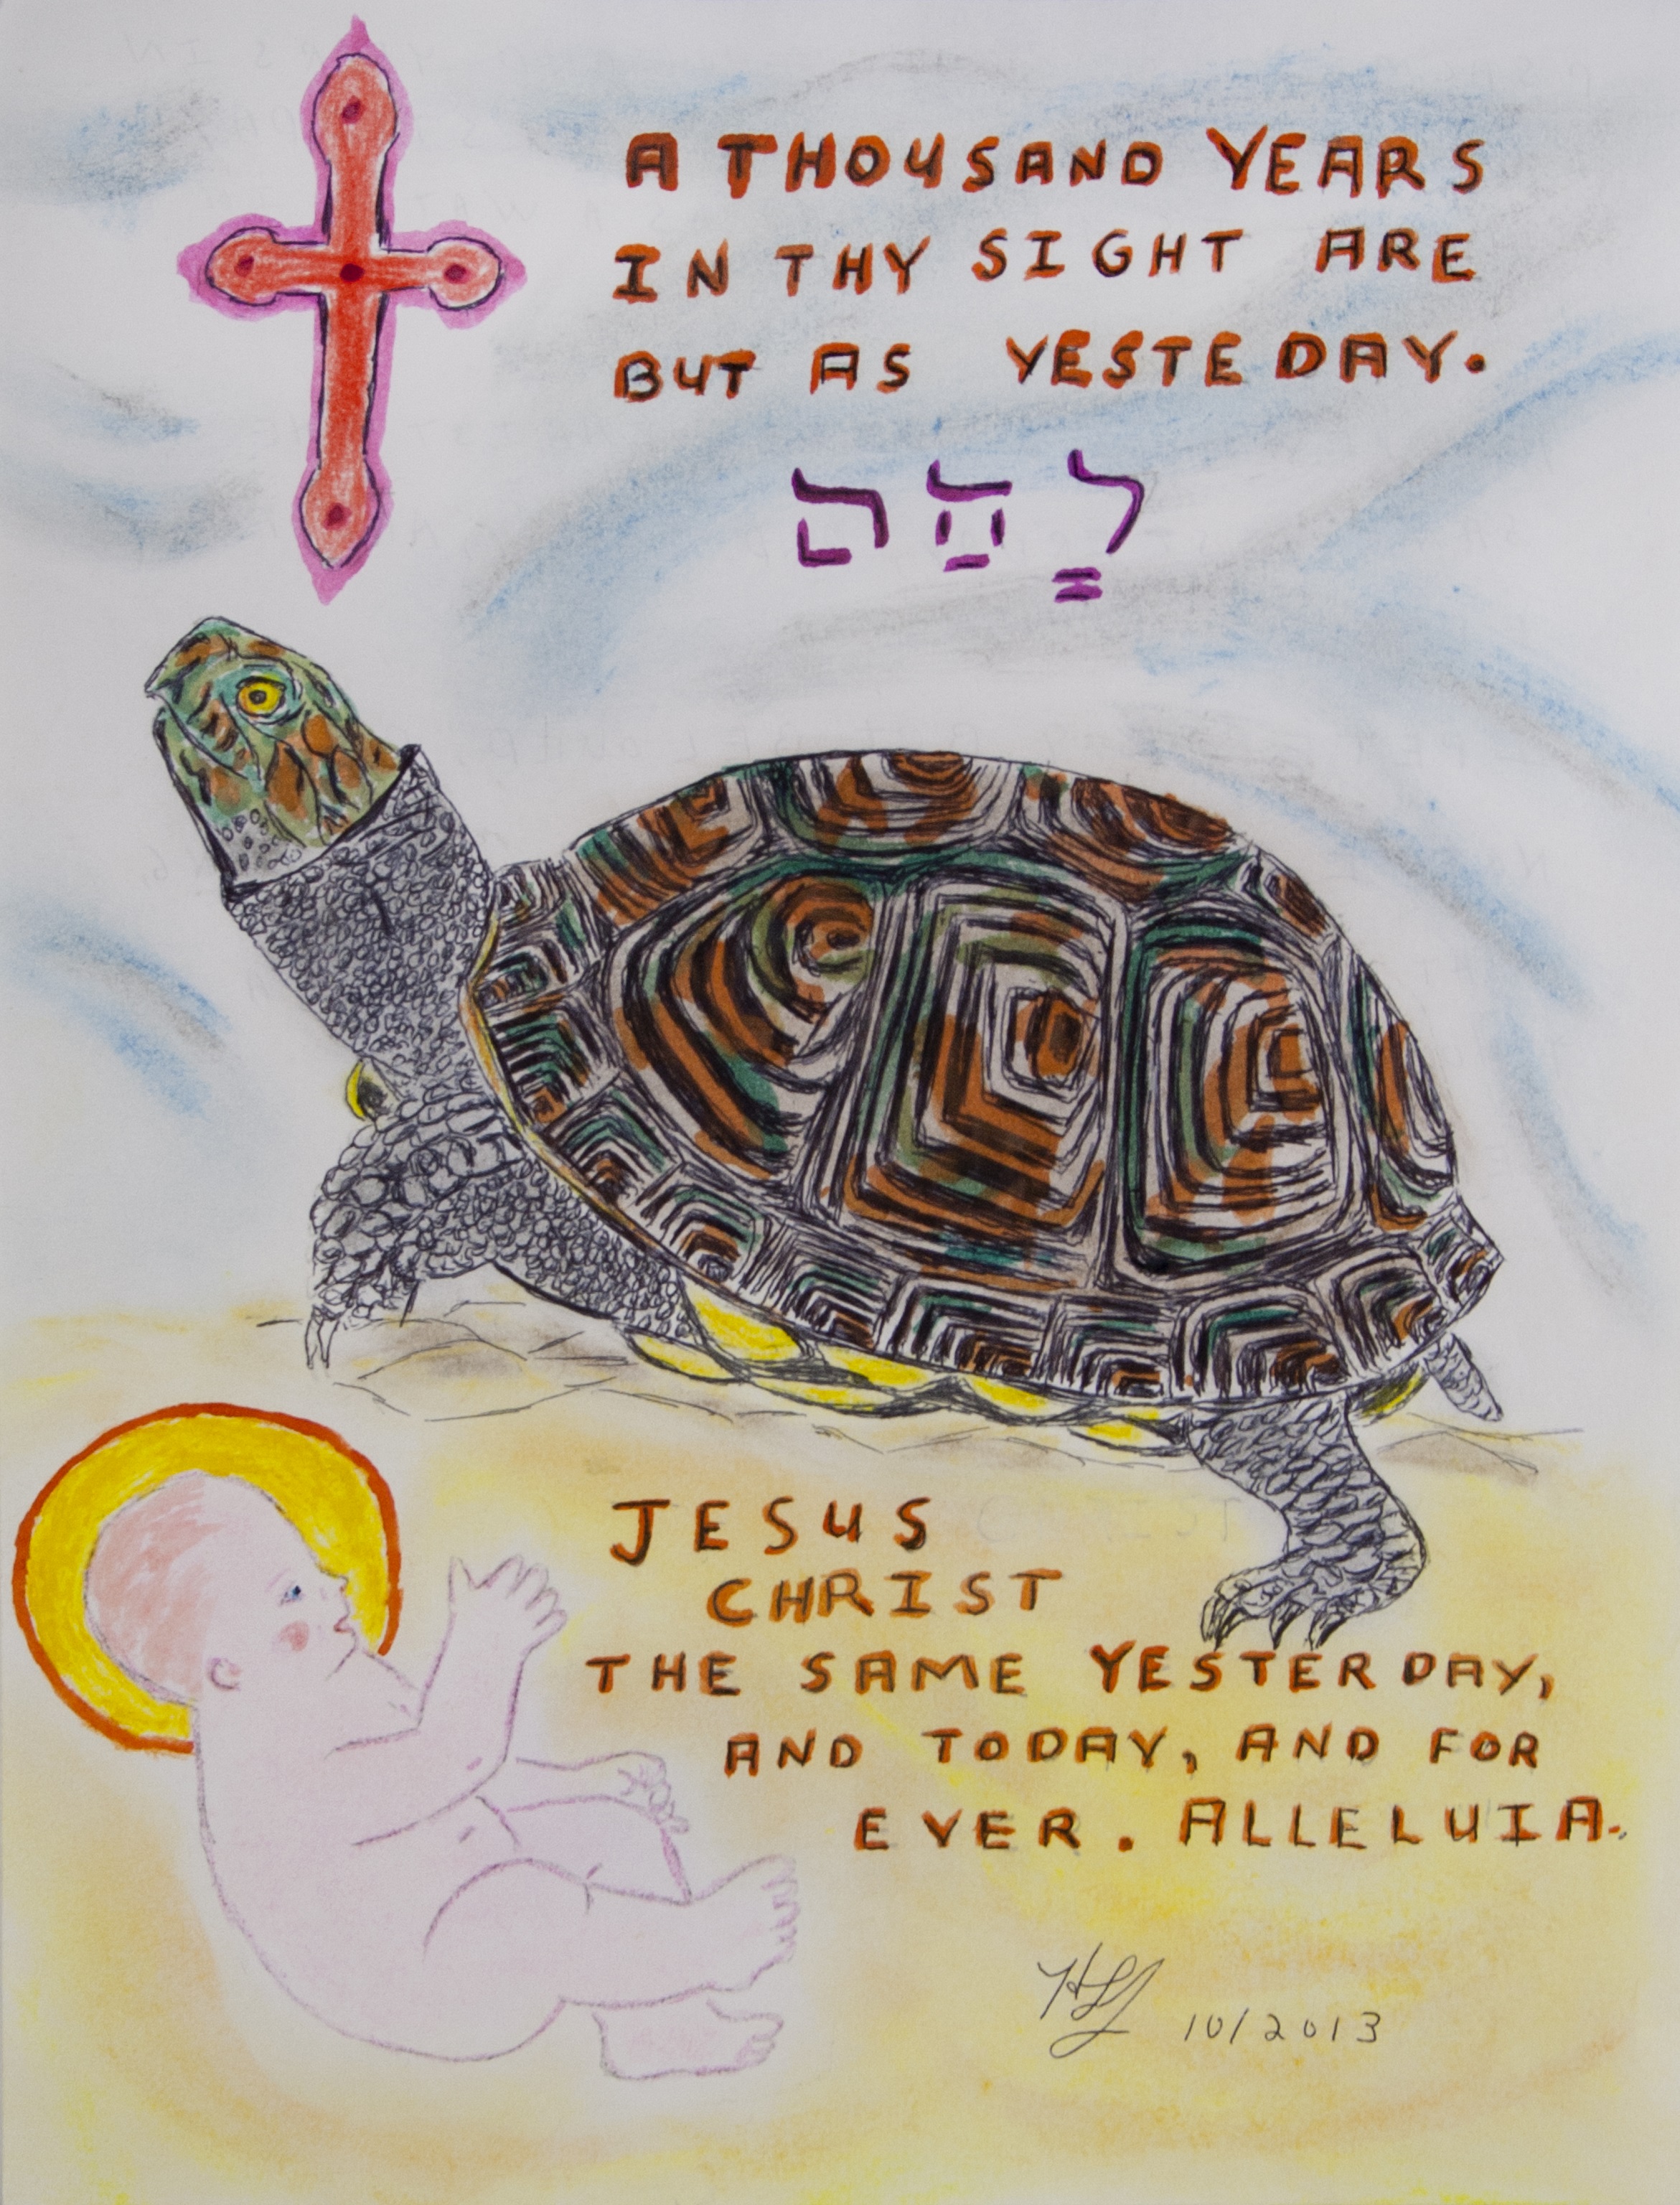 A THOUSAND YEARS
IN THY SIGHT ARE
BUT AS YESTEDAY.
JESUS
CHRIST
THE SAME YESTERDAY,
AND TODAY, AND FOR
EVER. ALLELUIA.
10/2013